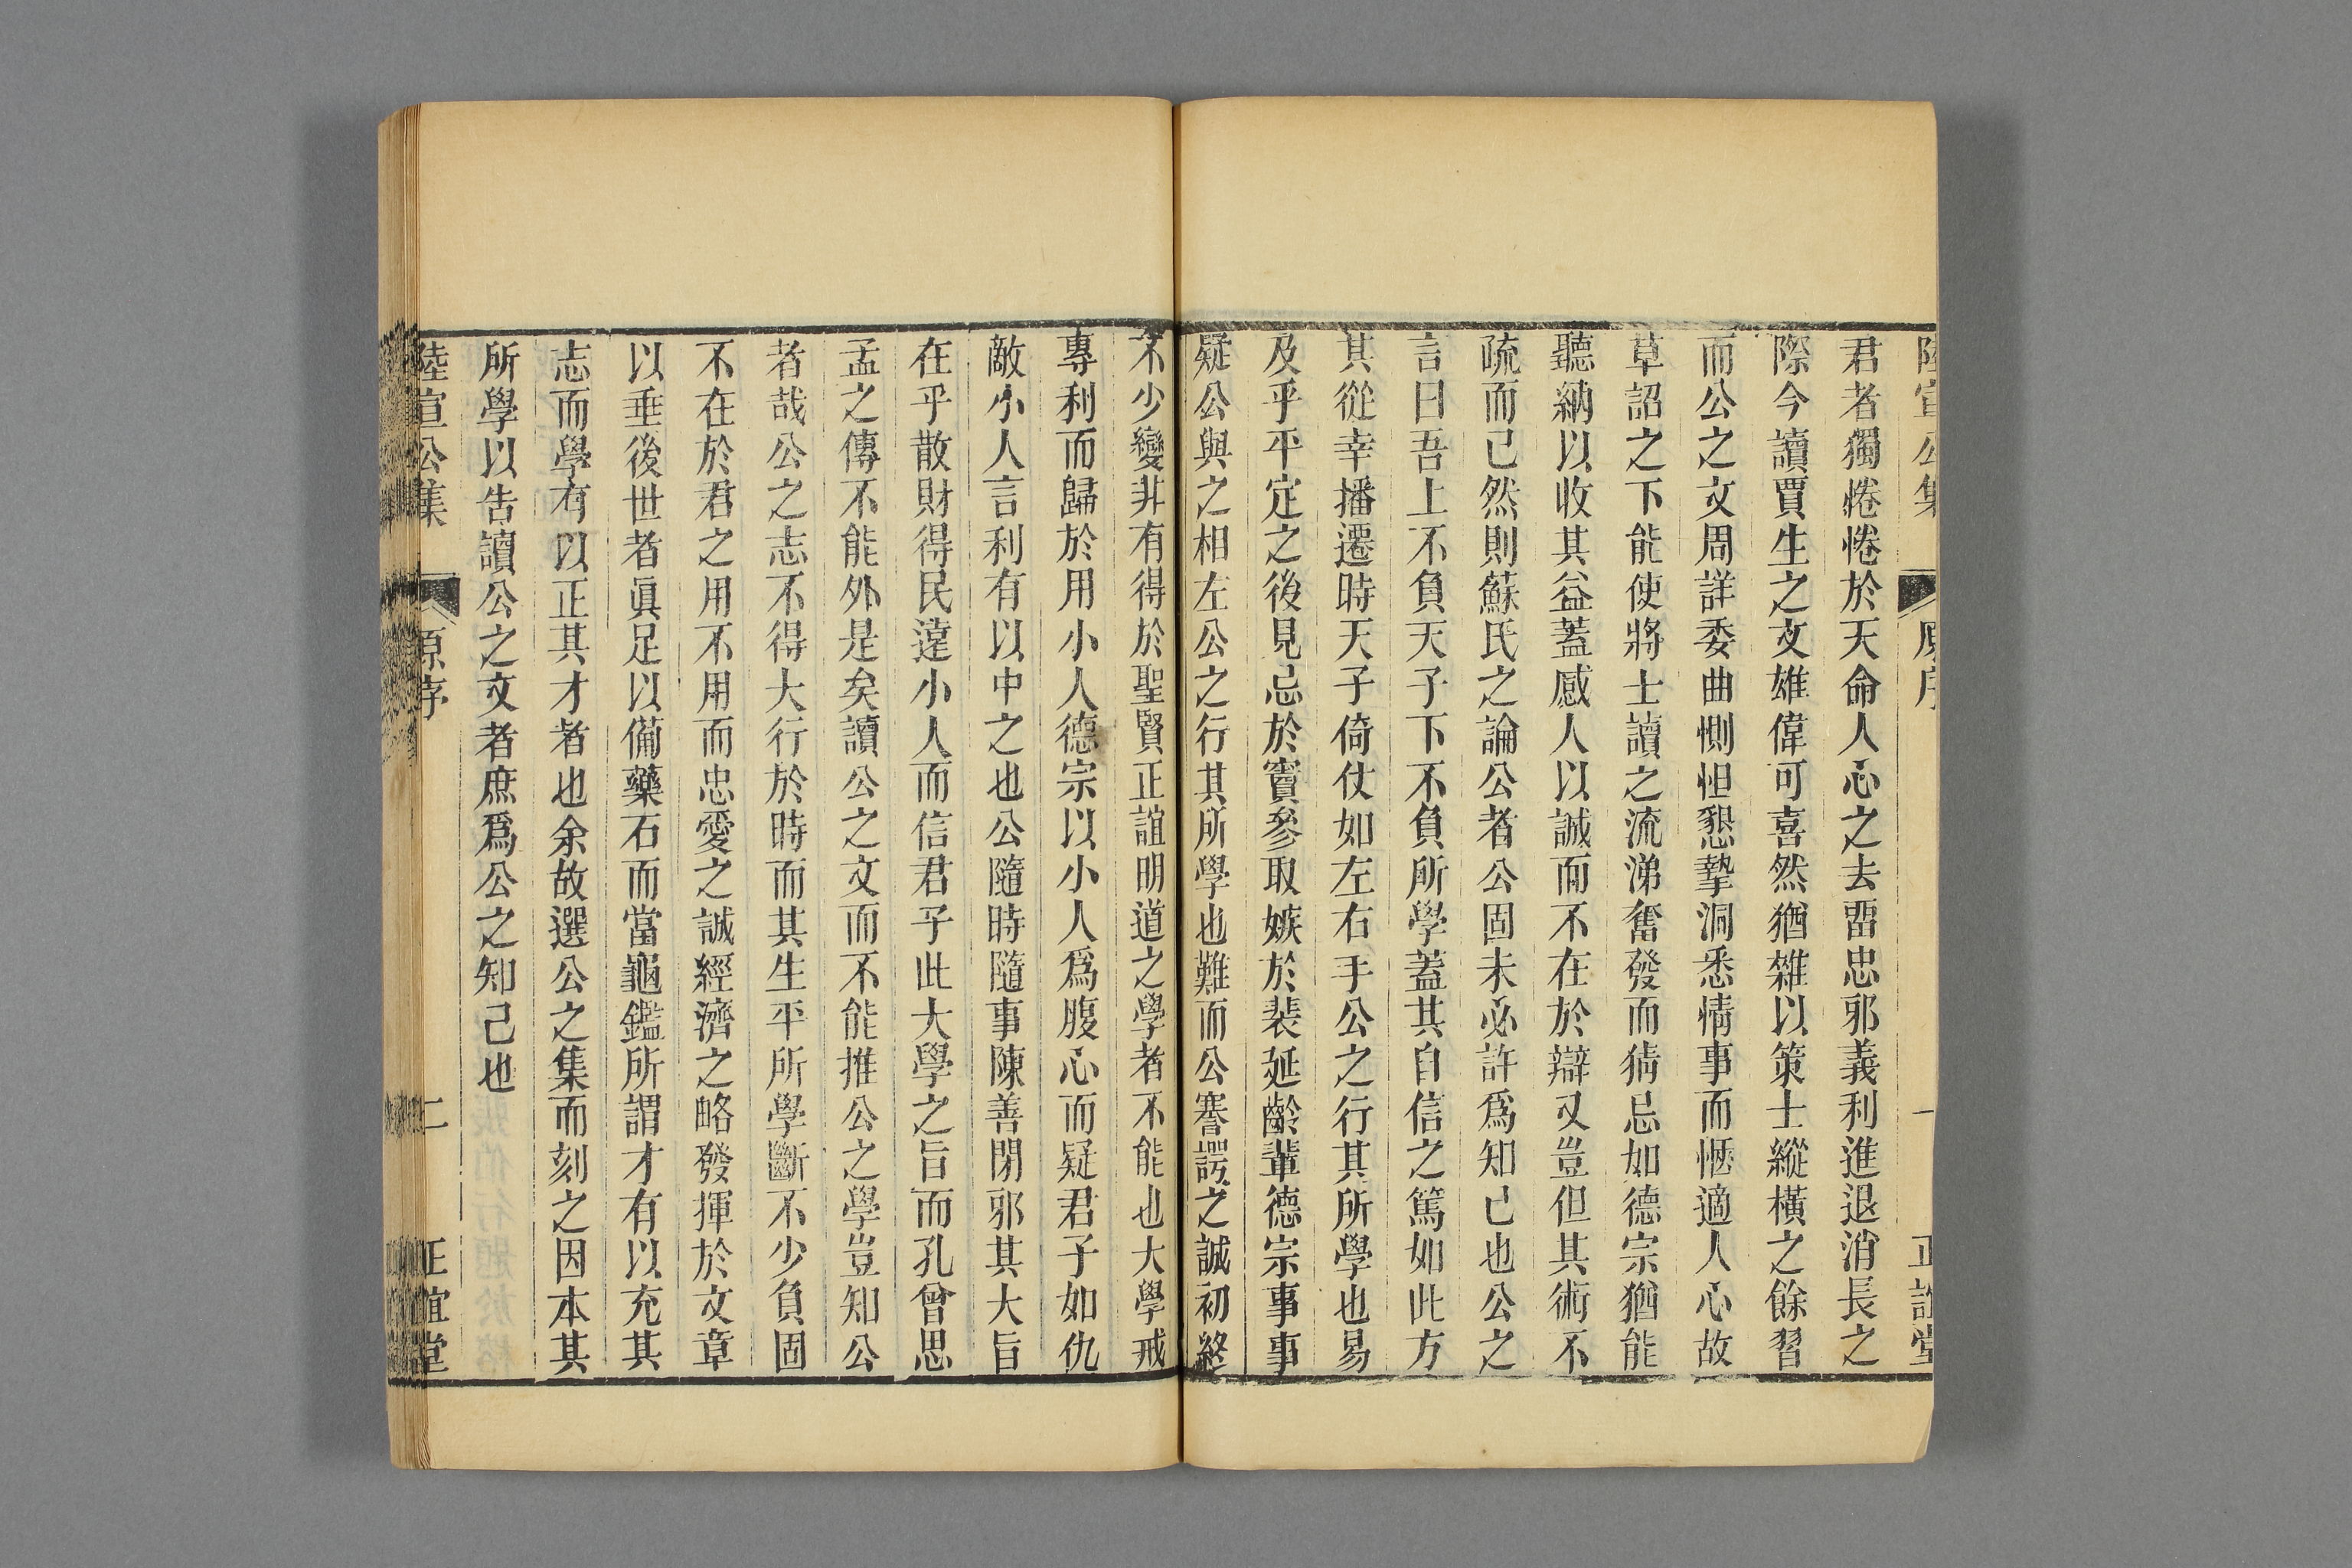 陸宣公集 原序 一 正誼堂
君者獨惓惓於天命人心之去畱忠邪義利進退消長之
際今讀賈生之文雄偉可喜然猶雜以策士縱橫之餘習
而公之文周詳委曲惻怛懇摯洞悉情事而愜適人心故
草詔之下能使將士讀之流涕奮發而猜忌如德宗猶能
聽納以收其益蓋感人以誠而不在於辯又豈但其術不
疏而已然則蘇氏之論公者公固未必許爲知己也公之
言曰吾上不負天子下不負所學蓋其自信之篤如此方
其從幸播遷時天子倚仗如左右手公之行其所學也易
及乎平定之後見忌於竇參取嫉於裴延齡輩德宗事事
疑公與之相左公之行其所學也難而公謇諤之誠初終
不少變非有得於聖賢正誼明道之學者不能也大學戒
專利而歸於用小人德宗以小人爲腹心而疑君子如仇
敵小人言利有以中之也公隨時隨事陳善閉邪其大旨
在乎散財得民遠小人而信君子此大學之旨而孔曾思
孟之傳不能外是矣讀公之文而不能推公之學豈知公
者哉公之志不得大行於時而其生平所學斷不少負固
不在於君之用不用而忠愛之誠經濟之略發揮於文章
以垂後世者眞足以備藥石而當龜鑑所謂才有以充其
志而學有以正其才者也余故選公之集而刻之因本其
所學以告讀公之文者庶爲公之知己也
陸宣公集 原序 二 正誼堂